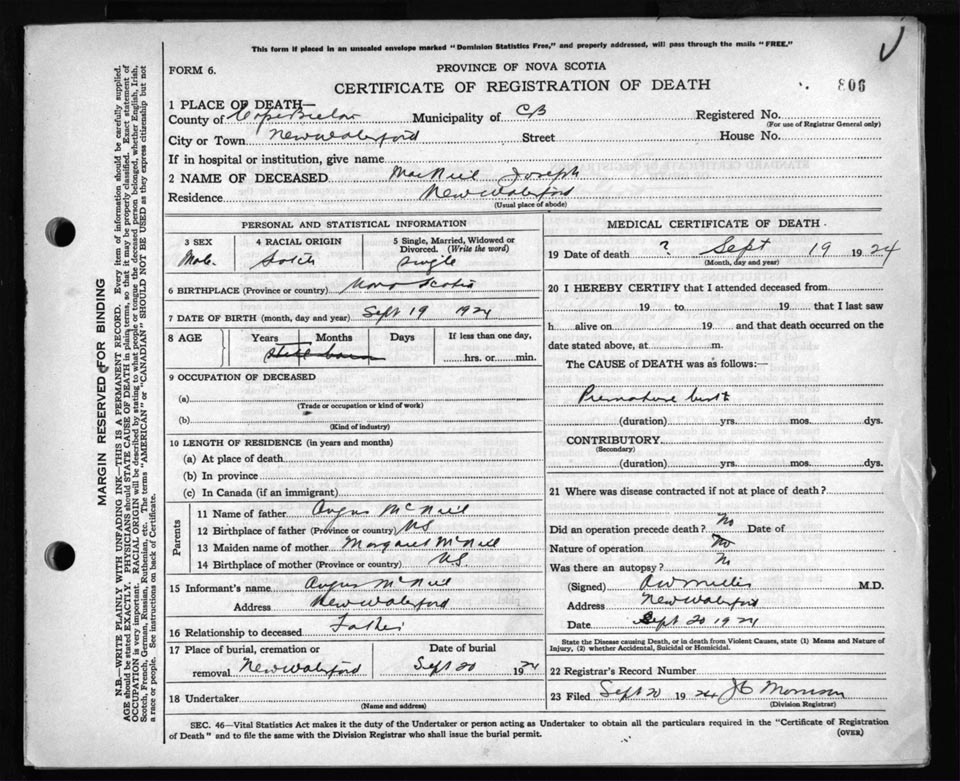 This form if placed in an unsealed envelope marked "Dominion Statistics Free," and properly addressed, will pass through the mails "FREE."
FORM 6.
PROVINCE OF NOVA SCOTIA
CERTIFICATE OF REGISTRATION OF DEATH
806
1 PLACE OF DEATH—
County of Cape Breton Municipality of CB Registered No.
(For use of Registrar General only)
City or Town New Waterford Street House No.
If in hospital or institution, give name
2 NAME OF DECEASED MacNeil Joseph
Residence New Waterford
(Usual place of abode)
PERSONAL AND STATISTICAL INFORMATION
3 SEX 4 RACIAL ORIGIN 5 Single, Married, Widowed or Divorced. (Write the word)
Male. Scotch single
6 BIRTHPLACE (Province or country) Nova Scotia
7 DATE OF BIRTH (month, day and year) Sept 19 1924
8 AGE Years Months Days If less than one day,
still born hrs. or min.
9 OCCUPATION OF DECEASED
(a)
(Trade or occupation or kind of work)
(b)
(Kind of industry)
10 LENGTH OF RESIDENCE (in years and months)
(a) At place of death
(b) In province
(c) In Canada (if an immigrant)
Parents
11 Name of father Angus McNeil
12 Birthplace of father (Province or country) NS
13 Maiden name of mother Margaret McNeil
14 Birthplace of mother (Province or country) N.S.
15 Informant's name Angus McNeil
Address New Waterford
16 Relationship to deceased Father
17 Place of burial, cremation or removal New Waterford
Date of burial
Sept 20 1924
18 Undertaker
(Name and address)
MEDICAL CERTIFICATE OF DEATH
19 Date of death ? Sept 19 1924
(Month, day and year)
20 I HEREBY CERTIFY that I attended deceased from
19 to 19 that I last saw
h alive on 19 and that death occurred on the
date stated above, at m.
The CAUSE of DEATH was as follows:—
Premature birth
(duration) yrs. mos. dys.
CONTRIBUTORY
(Secondary)
(duration) yrs. mos. dys.
21 Where was disease contracted if not at place of death?
Did an operation precede death? No Date of
Nature of operation No
Was there an autopsy? No
(Signed) M.D.
Address New Waterford
Date Sept 20 1924
State the Disease causing Death, or in death from Violent Causes, state (1) Means and Nature of Injury, (2) whether Accidental, Suicidal or Homicidal.
22 Registrar's Record Number
23 Filed Sept 20 1924 J C Morrison
(Division Registrar)
SEC. 46—Vital Statistics Act makes it the duty of the Undertaker or person acting as Undertaker to obtain all the particulars required in the "Certificate of Registration
of Death" and to file the same with the Division Registrar who shall issue the burial permit.
(OVER)
MARGIN RESERVED FOR BINDING
N.B.—WRITE PLAINLY WITH UNFADING INK—THIS IS A PERMANENT RECORD. Every item of information should be carefully supplied.
AGE should be stated EXACTLY. PHYSICIANS should STATE CAUSE OF DEATH in plain terms, so that it may be properly classified. Exact statement of
OCCUPATION is very important. RACIAL ORIGIN will be described by stating to what people or tongue the deceased person belonged, whether English, Irish,
Scotch, French, German, Russian, Ruthenian, etc. The terms "AMERICAN" or "CANADIAN" SHOULD NOT BE USED as they express citizenship but not
a race or people. See instructions on back of Certificate.